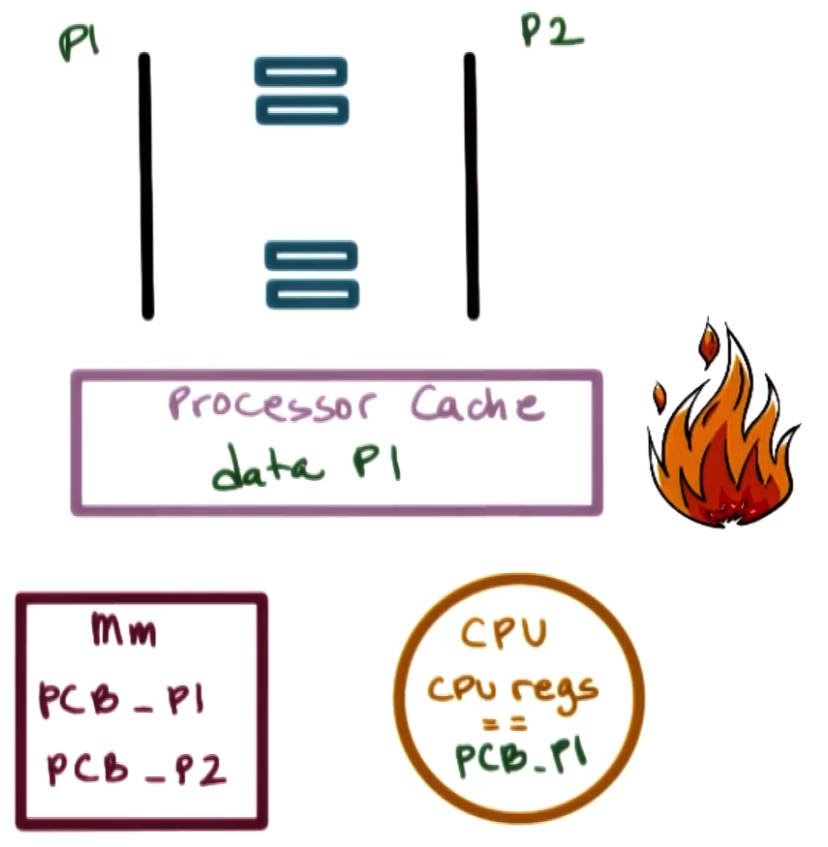 P1
P2
Processor Cache
data P1
Mm
PCB_P1
PCB_P2
CPU
CPU regs
==
PCB_P1